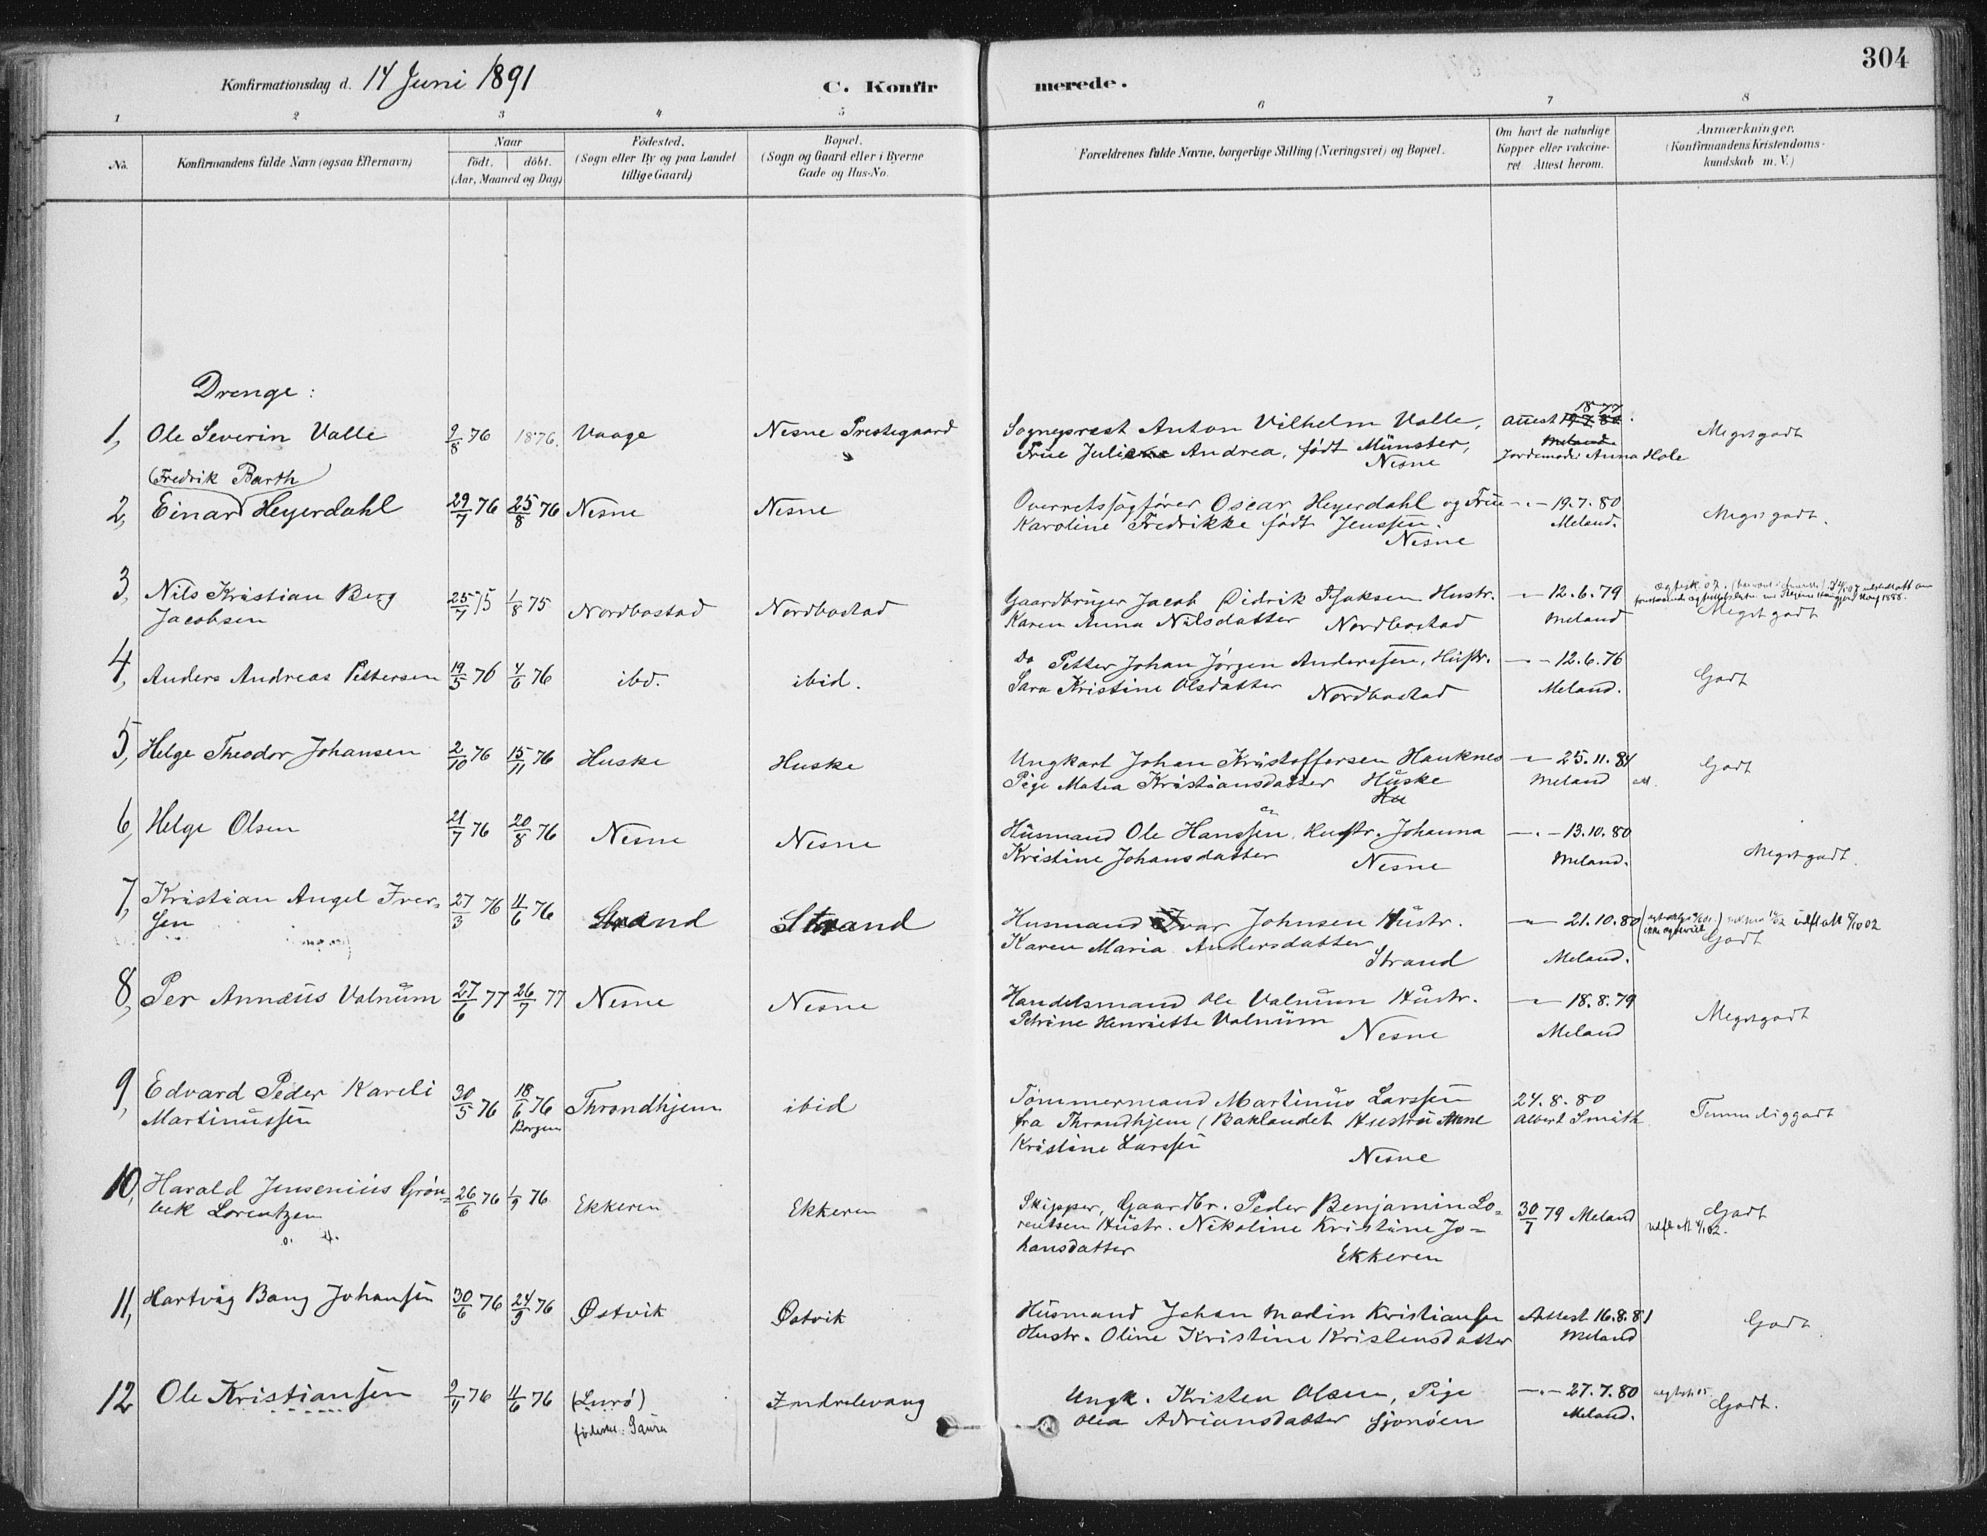 304
Konfirmationsdag d. 14 Juni 1891
C. Konfir merede.
1 2 3 4 5 6 7 8
No.
Konfirmandens fulde Navn (ogsaa Efternavn)
Naar
født. døbt.
(Aar, Maaned og Dag)
Fødested.
(Sogn eller By og paa Landet
tillige Gaard)
Bopæl.
(Sogn og Gaard eller i Byerne
Gade og Hus-No.
Forældrenes fulde Navne, borgerlige Stilling (Næringsvei) og Bopæl.
Om havt de naturlige
Kopper eller vakcine-
ret. Attest herom.
Anmærkninger.
(Konfirmandens Kristendoms-
kundskab m. V.)
Drenge:
1, Ole Severin Valle 2/8 76 1876. Vaage Nesne Prestegaard Sogneprest Anton Vilhelm Valle, Attest 1877
Frue Juliane Andrea, født Münster, Meland
Nesne Jordemoder Anna Hole
Megetgodt
(Fredrik Barth
2, Einar Heyerdahl 29/7 76 25/8 76 Nesne Nesne Overretssagfører Oscar Heyerdahl og Frue -"- 19.7.80
Karoline Fredrikke født Jenssen. Meland.
Nesne
Meget godt.
3, Nils Kristian Berg 25/7 75 1/8 75 Nordbostad Nordbostad Gaardbruger Jacob Didrik Isaksen Hustr. -"- 12.6.79
Jacobsen Karen Anna Nilsdatter Nordbostad Meland
Megetgodt
4, Anders Andreas Pettersen 19/5 76 4/6 76 ibd. ibid. Do Petter Johan Jørgen Anderssen, Hustr. -"- 12.6.76
Sara Kristine Olsdatter Nordbostad Meland.
Godt
5, Helge Theodor Johansen 2/10 76 15/11 76 Huske Huske Ungkarl Johan Kristoffersen Hauknes -"- 25.11.84
Pige Matea Kristiansdatter Huske Meland
Hu
Godt
6, Helge Olsen 21/7 76 20/8 76 Nesne Nesne Husmand Ole Hanssen, Hustr. Johanna -"- 13.10.80
Kristine Johansdatter Nesne Meland.
Megetgodt.
7, Kristian Angel Iver- 27/3 76 4/6 76 Strand Strand Husmand Ivar Johnsen Hustr. -"- 21.10.80
sen Karen Maria Andersdatter Strand Meland.
Godt
8, Per Annæus Valnum 27/6 77 26/7 77 Nesne Nesne Handelsmand Ole Valnum Hustr. -"- 18.8.79
Petrine Henriette Valnum Nesne Meland
Megetgodt
9, Edvard Peder Kareli 30/5 76 18/6 76 Throndhjem ibid Tømmermand Martinus Larssen 24.8.80
Martinussen fra Throndhjem (Baklandet Hustru Anne Albert Smith
Kristine Larssen
Nesne
Temmeliggodt
10, Harald Jensenius Grøn- 26/6 76 1/9 76 Ekkeren Ekkeren Skipper, Gaardbr. Peder Benjamin Lo- 30/7 79 Meland
bek Lorentzen rentsen Hustr. Nikoline Kristine Jo-
hansdatter Ekkeren
Godt
11, Hartvig Bang Johansen 30/6 76 24/9 76 Østvik Østvik Husmand Johan Martin Kristiansen Attest 16.8.81
Hustr. Oline Kristine Kristensdatter Meland
Godt
12 Ole Kristiansen 2/4 76 4/6 76 (Lurø) Indrelevang Ungk. Kristen Olsen, Pige -"- 27.7.80
Olea Adriansdatter Sjonøen Meland.
Godt.